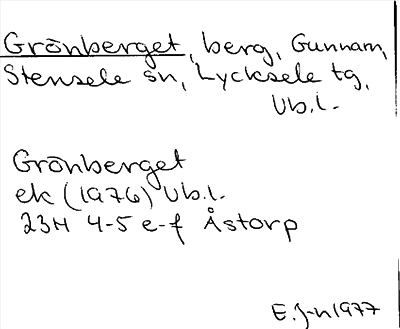 Grönberget, berg, Gunnarn,
Stensele sn, Lycksele tg,
Vb.l.
Grönberget
ek (1976) Vb.l.
23H 4-5 e-f Åstorp
E.J-n 1977